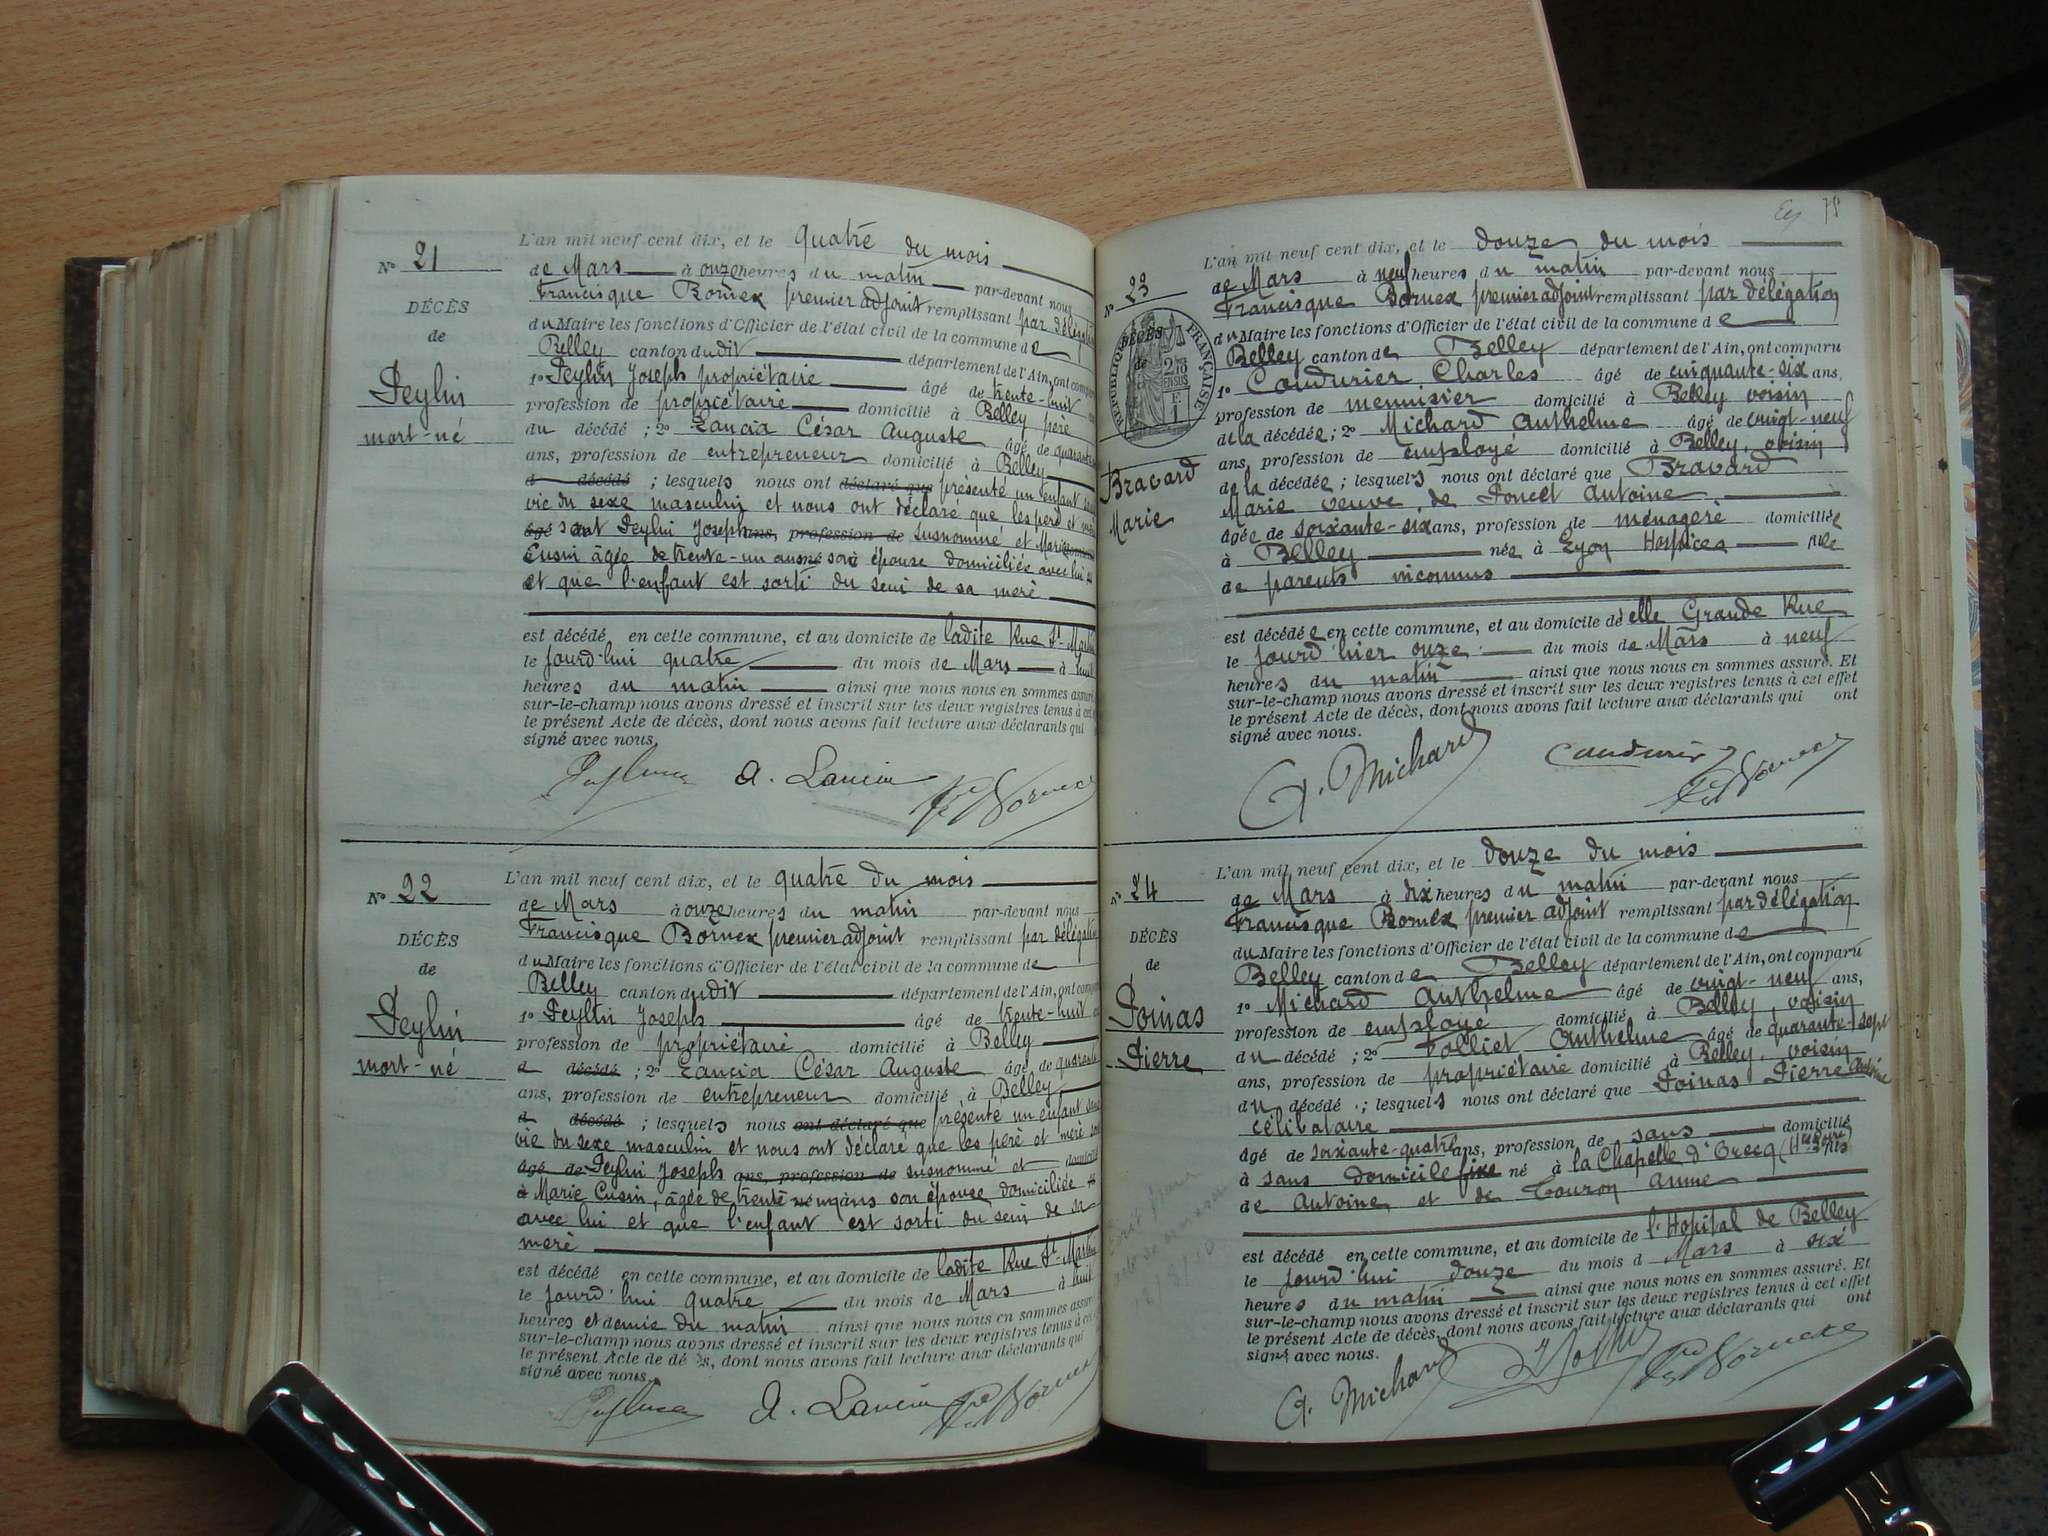 L'an mil neuf cent dix, et le quatre du mois
N° 21
de Mars à onze heures du matin par-devant nous
Francisque Bornex premier adjoint remplissant par délégation
DÉCÈS
du Maire les fonctions d'Officier de l'état civil de la commune de
de
Belley canton dudit département de l'Ain, ont comparu
Peylin
1° Peylin Joseph propriétaire âgé de trente-huit
profession de propriétaire domicilié à Belley père
mort-né
du décédé ; 2° Lancia César Auguste âgé de quarante
ans, profession de entrepreneur domicilié à Belley
décédé ; lesquels nous ont déclaré que présenté un enfant sans
vie du sexe masculin et nous ont déclaré que les père et mère
âgé sont Peylin Joseph ans, profession de susnommé et Marie
Cusin âgée de trente-un ans né son épouse domiciliée avec lui
et que l'enfant est sorti du sein de sa mère
est décédé en cette commune, et au domicile de ladite Rue St-Martin
le jourd'hui quatre du mois de Mars à huit
heures du matin ainsi que nous nous en sommes assuré
sur-le-champ nous avons dressé et inscrit sur les deux registres tenus à cet
le présent Acte de décès, dont nous avons fait lecture aux déclarants qui
signé avec nous.
A. Lancia
L'an mil neuf cent dix, et le quatre du mois
N° 22
de Mars à onze heures du matin par-devant nous
Francisque Bornex premier adjoint remplissant par délégation
DÉCÈS
du Maire les fonctions d'Officier de l'état civil de la commune de
de
Belley canton dudit département de l'Ain, ont comparu
Peylin
1° Peylin Joseph âgé de trente-huit
profession de propriétaire domicilié à Belley
mort-né
décédé ; 2° Lancia César Auguste âgé de quarante
ans, profession de entrepreneur domicilié à Belley
décédé ; lesquels nous ont déclaré que présenté un enfant sans
vie du sexe masculin et nous ont déclaré que les père et mère sont
âgé de Peylin Joseph ans, profession de susnommé et domicilié
à Marie Cusin, âgée de trente un ans son épouse domiciliée
avec lui et que l'enfant est sorti du sein de sa
mère
est décédé en cette commune, et au domicile de ladite Rue St-Martin
le jourd'hui quatre du mois de Mars à huit
heures et demie du matin ainsi que nous nous en sommes assuré
sur-le-champ nous avons dressé et inscrit sur les deux registres tenus à cet
le présent Acte de décès, dont nous avons fait lecture aux déclarants qui
signé avec nous.
A. Lancia
75
L'an mil neuf cent dix, et le douze du mois
N° 23
de Mars à neuf heures du matin par-devant nous
Francisque Bornex premier adjoint remplissant par délégation
DÉCÈS
du Maire les fonctions d'Officier de l'état civil de la commune de
de
RÉPUBLIQUE FRANÇAISE
Belley canton de Belley département de l'Ain, ont comparu
1° Coudurier Charles âgé de cinquante-six ans,
profession de menuisier domicilié à Belley voisin
de la décédée ; 2° Michard Anthelme âgé de vingt-neuf
ans, profession de employé domicilié à Belley, voisin
Bravard
Marie
de la décédée ; lesquels nous ont déclaré que Bravard
Marie veuve de Poncet Antoine
âgée de soixante-six ans, profession de ménagère domiciliée
à Belley née à Lyon Hospices fille
de parents inconnus
est décédée en cette commune, et au domicile d'elle Grande Rue
le jourd'hier onze du mois de Mars à neuf
heures du matin ainsi que nous nous en sommes assuré. Et
sur-le-champ nous avons dressé et inscrit sur les deux registres tenus à cet effet
le présent Acte de décès, dont nous avons fait lecture aux déclarants qui ont
signé avec nous.
A. Michard Coudurier
L'an mil neuf cent dix, et le douze du mois
N° 24
de Mars à dix heures du matin par-devant nous
Francisque Bornex premier adjoint remplissant par délégation
DÉCÈS
du Maire les fonctions d'Officier de l'état civil de la commune de
de
Belley canton de Belley département de l'Ain, ont comparu
Poinas
Pierre
1° Michard Anthelme âgé de vingt-neuf ans,
profession de employé domicilié à Belley, voisin
du décédé ; 2° Tolliet Anthelme âgé de quarante-sept
ans, profession de propriétaire domicilié à Belley, voisin
du décédé ; lesquels nous ont déclaré que Poinas Pierre Antoine
célibataire
âgé de soixante-quatre ans, profession de sans domicilié
à sans domicile fixe né à la Chapelle d' (Hte Loire) fils
de Antoine et de Touron Anne
est décédé en cette commune, et au domicile de l'Hopital de Belley
le jourd'hui douze du mois d Mars à six
heures du matin ainsi que nous nous en sommes assuré. Et
sur-le-champ nous avons dressé et inscrit sur les deux registres tenus à cet effet
le présent Acte de décès, dont nous avons fait lecture aux déclarants qui ont
signé avec nous.
A. Michard